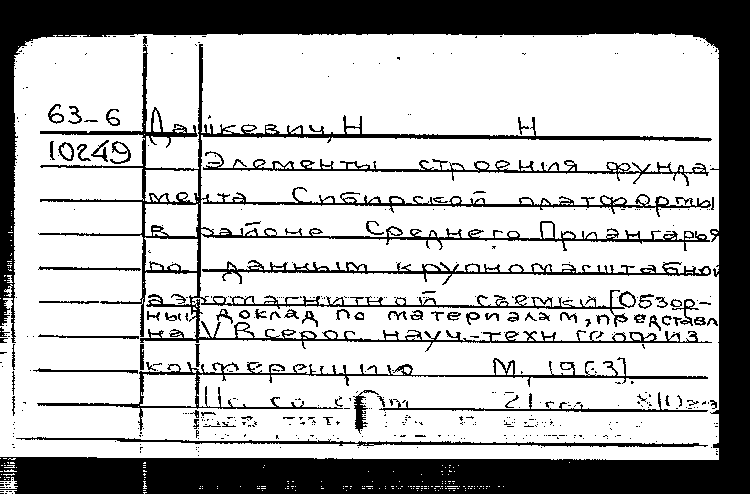 63-6 Дашкевич, Н Н
10249 Элементы строения фунда-
мента Сибирской платформы
в районе Среднего Приангарья
по данным крупномасштабной
аэромагнитной съемки. [Обзор-
ный доклад по материалам, представл
на V Всерос науч-техн геофиз.
конференцию М., 1963].
11с. со 21см
Без тит. л.